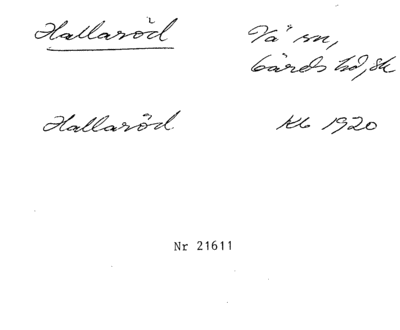 Hallaröd Vä sn,
Gärds hd, Sk
Hallaröd Kb 1920
Nr 21611